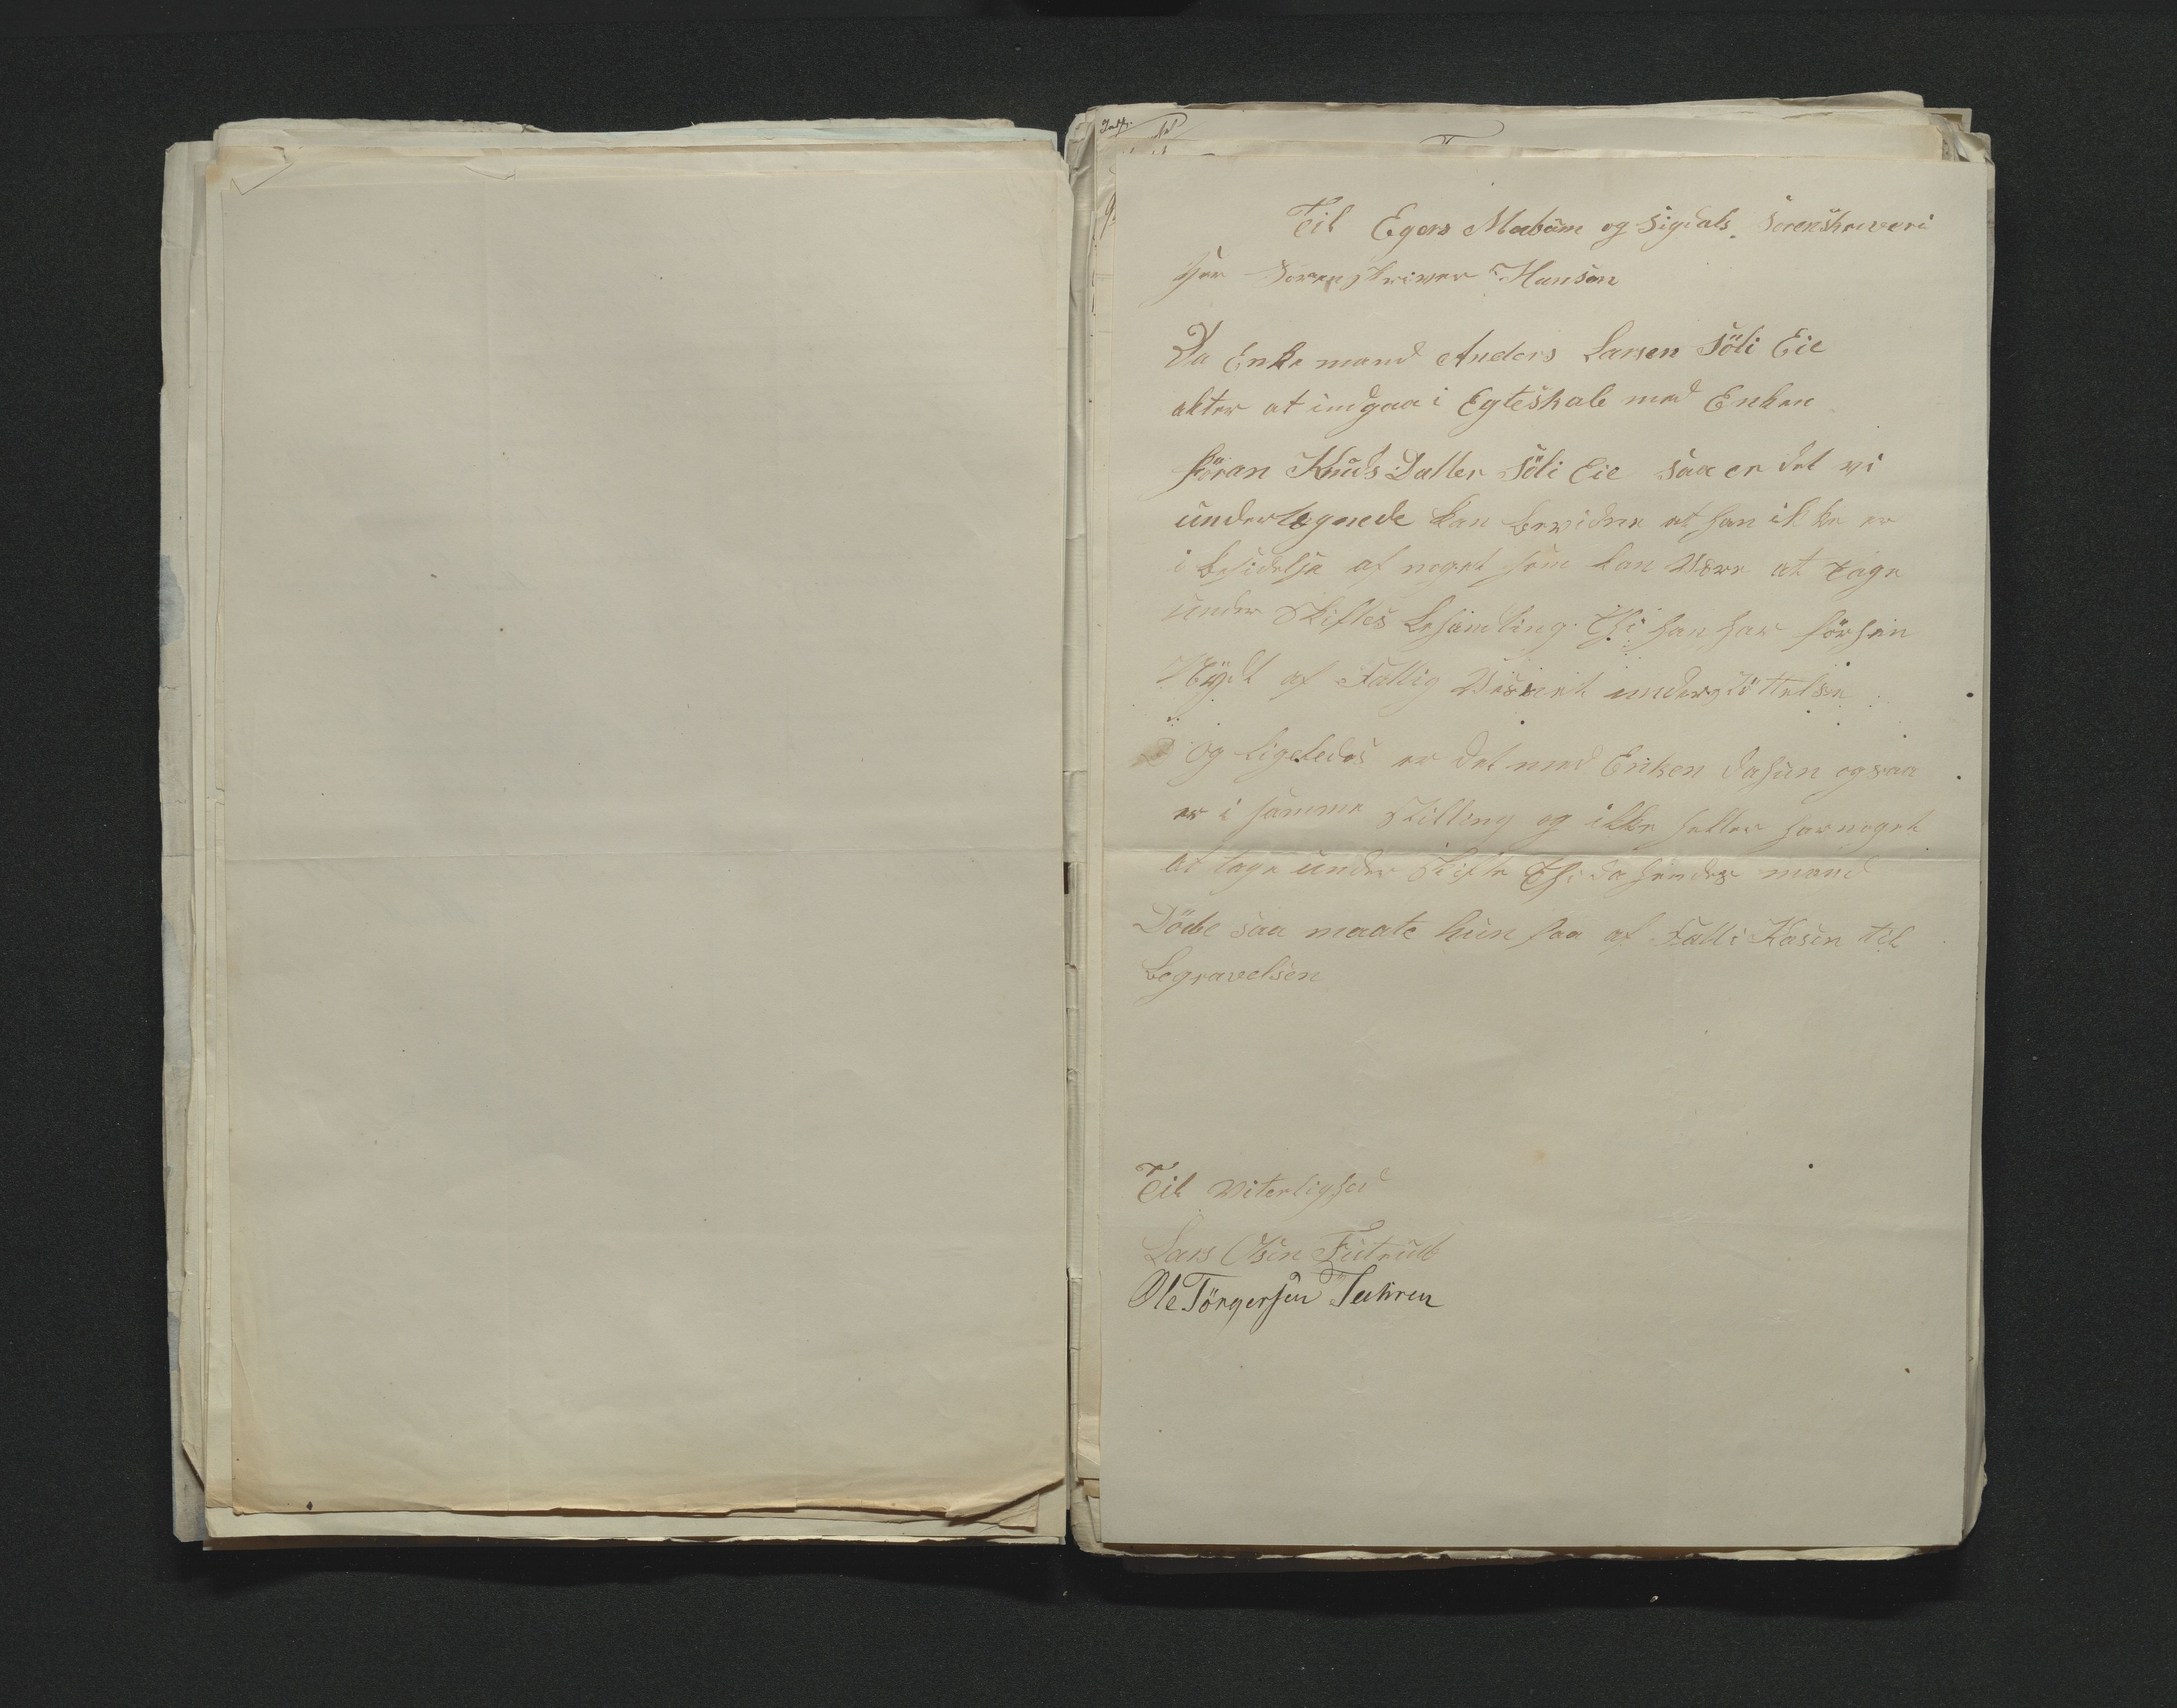 Til Egers Mobüm og Sigdals Sorenskreveri
Her Sorenskriver Hansen
Da Enke mand Anders Larsen Söli Eie
akter at indgaa i Egteskab med Enken
Jöran Knuds Datter Söli Eie saa er det vi
undertegnede kan bevidne at han ikke er
i besidelse af noget som kan være at tage
under Skiftes behandling Thi han har förhen
Nÿdt af Fattig Væsnet understöttelse
og ligeledes er det med Enken da hun ogsaa
er i samme Stilling og ikke heller har noget
at tage under Skifte Thi da hendes mand
Döde saa maate hun faa af Fatti Kasen til
Begravelsen
Til Viterlighed
Lars Olsen
Ole Törgersen